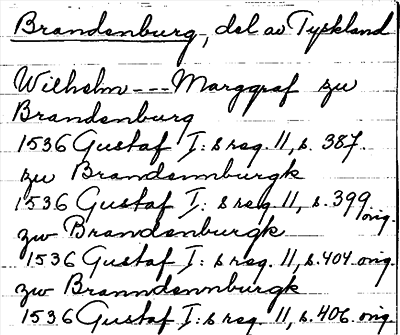 Brandenburg, del av Tyskland
Wilhelm --- Marggraf zu
Brandenburg
1536 Gustaf I:s reg. 11, s. 387.
zu Brandennburgk
1536 Gustaf I:s reg. 11, s. 399 orig.
zw Brandenburgk
1536 Gustaf I:s reg. 11, s. 404 orig.
zw Branndennburgk
1536 Gustaf I:s reg. 11, s. 406 orig.